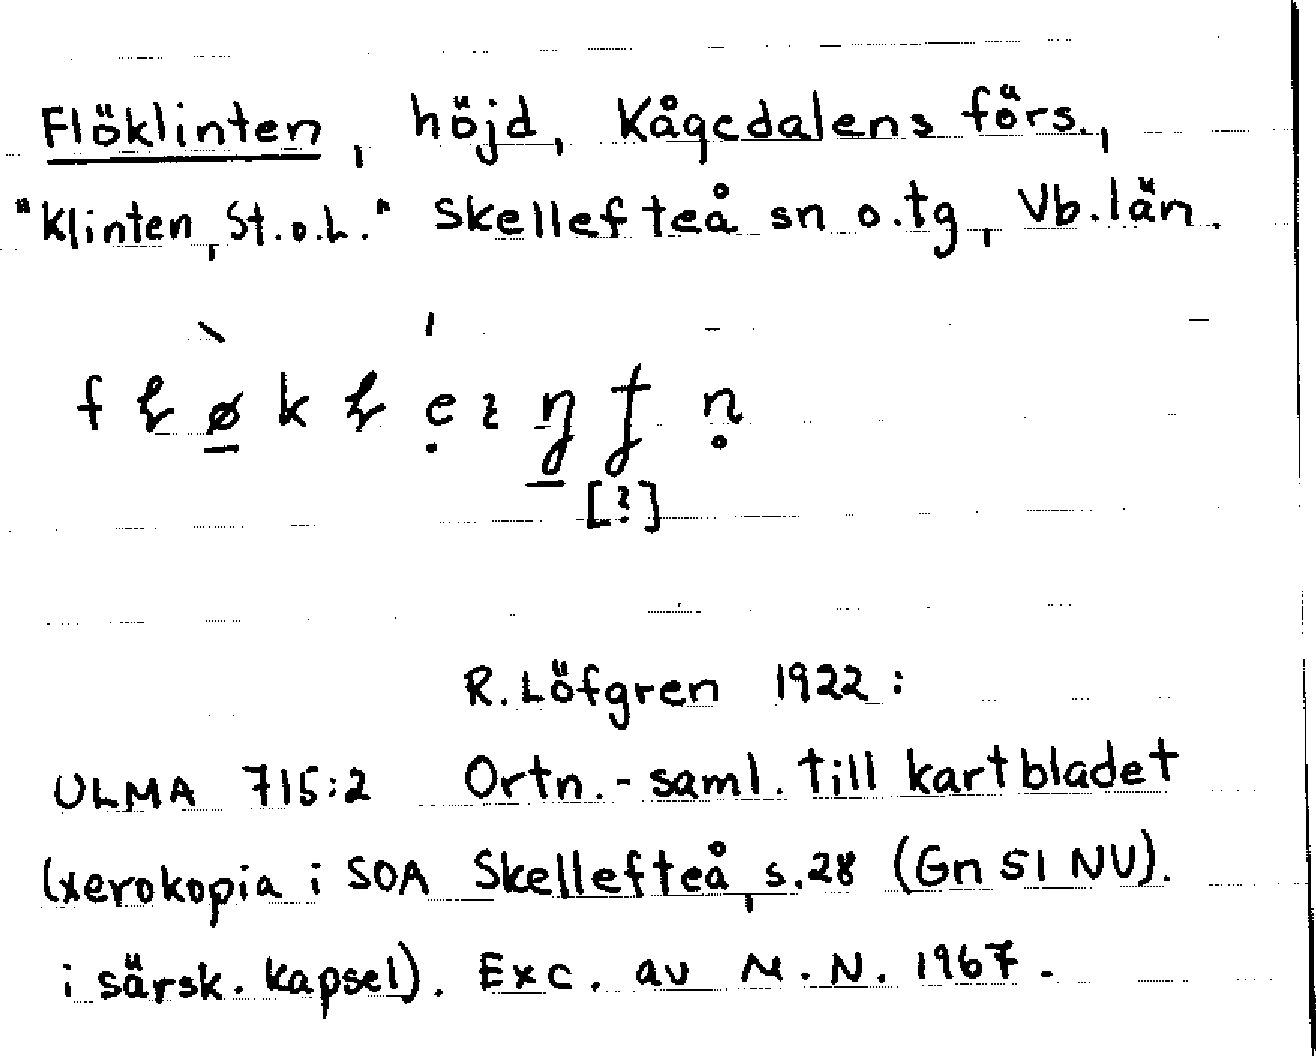 Flöklinten, höjd, Kågedalens förs.,
"Klinten, St.o.L." Skellefteå sn o.tg, Vb.län.
[?]
R. Löfgren 1922:
ULMA 715:2 Ortn.-saml. till kartbladet
(xerokopia i SOA Skellefteå, s.28 (Gn 51 NV).
i särsk. kapsel). Exc. av M.N. 1967.